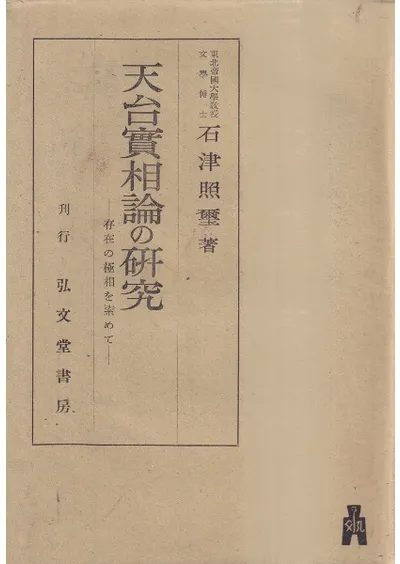 東北帝國大學敎授
文學博士
石津照璽著
天台實相論の研究
―存在の極相を索めて―
刊行 弘文堂書房